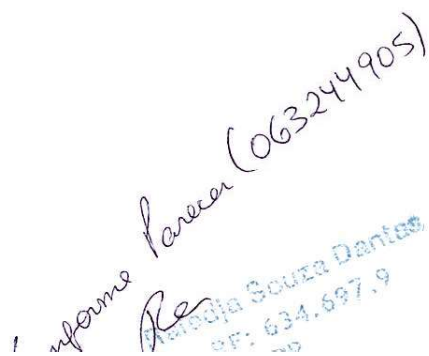 Conforme Parecer (063244905)
Souza Dantas
RF: 634.697.9